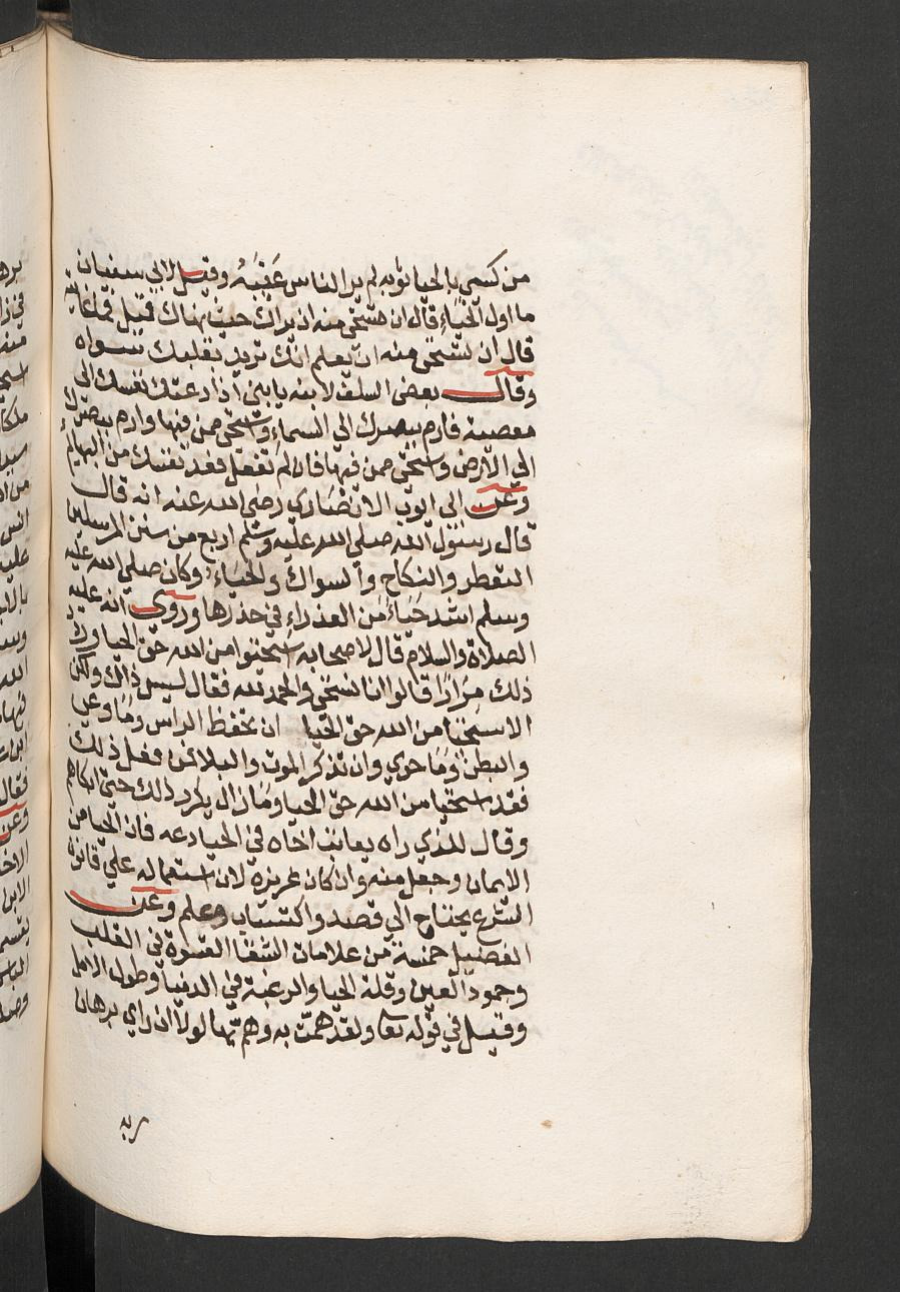 من كسي بالحيا ثوبه لم ير الناس عيبه وقيل لابي سفيان
ما اول الحياء قال ان تستحي منه ان يراك حيث نهاك قيل فما غايته
قال ان تستحي منه ان يعلم انك تريد بقلبك سواه
وقال بعض السلف لابنه يا بني اذا دعتك نفسك الى
معصية فارم ببصرك الي السماء واستحي ممن فيها وارم ببصرك
الي الارض واستحي ممن فيها فان لم تفعل فعد نفسك من البهايم
وعن ابي ايوب الانصاري رضي الله عنه انه قال
قال رسول الله صلي الله عليه وسلم اربع من سنن المرسلين
التعطر والنكاح والسواك والحياء وكان صلي الله عليه
وسلم اشد حياء من العذراء في خدرها وروي انه عليه
الصلاة والسلام قال لاصحابه استحيوا من الله حق الحيا وردد
ذلك مرارا قالوا انا نستحي والحمد لله فقال ليس ذاك ولكن
الاستحيا من الله حق الحيا ان تحفظ الراس وما وعي
والبطن وما حوي وان تذكر الموت والبلا فمن فعل ذلك
فقد استحيا من الله حق الحيا وما زال يكرر ذلك حتى ابكاهم
وقال للذي راه يعاتب اخاه في الحيا دعه فان الحيا من
الايمان وجعل منه وان كان غريزه لان استعماله علي قانون
الشرع يحتاج الي قصد واكتساب وعلم وعن
الفضيل خمسة من علامات الشقا القسوة في القلب
وجمود العين وقلة الحيا والرغبة في الدنيا وطول الامل
وقيل في قوله تعا ولقد همت به وهم بها لولا ان راي برهان
ربه